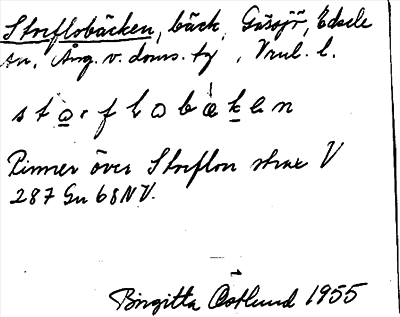 Storflobäcken, bäck, Gåxsjö, Edsele
sn, Ång. v. doms. tg, Vrul. l.
stɷrflɷbäken
Rinner över Storflon strax V
287 Gu 68 NV.
Birgitta Östlund 1955